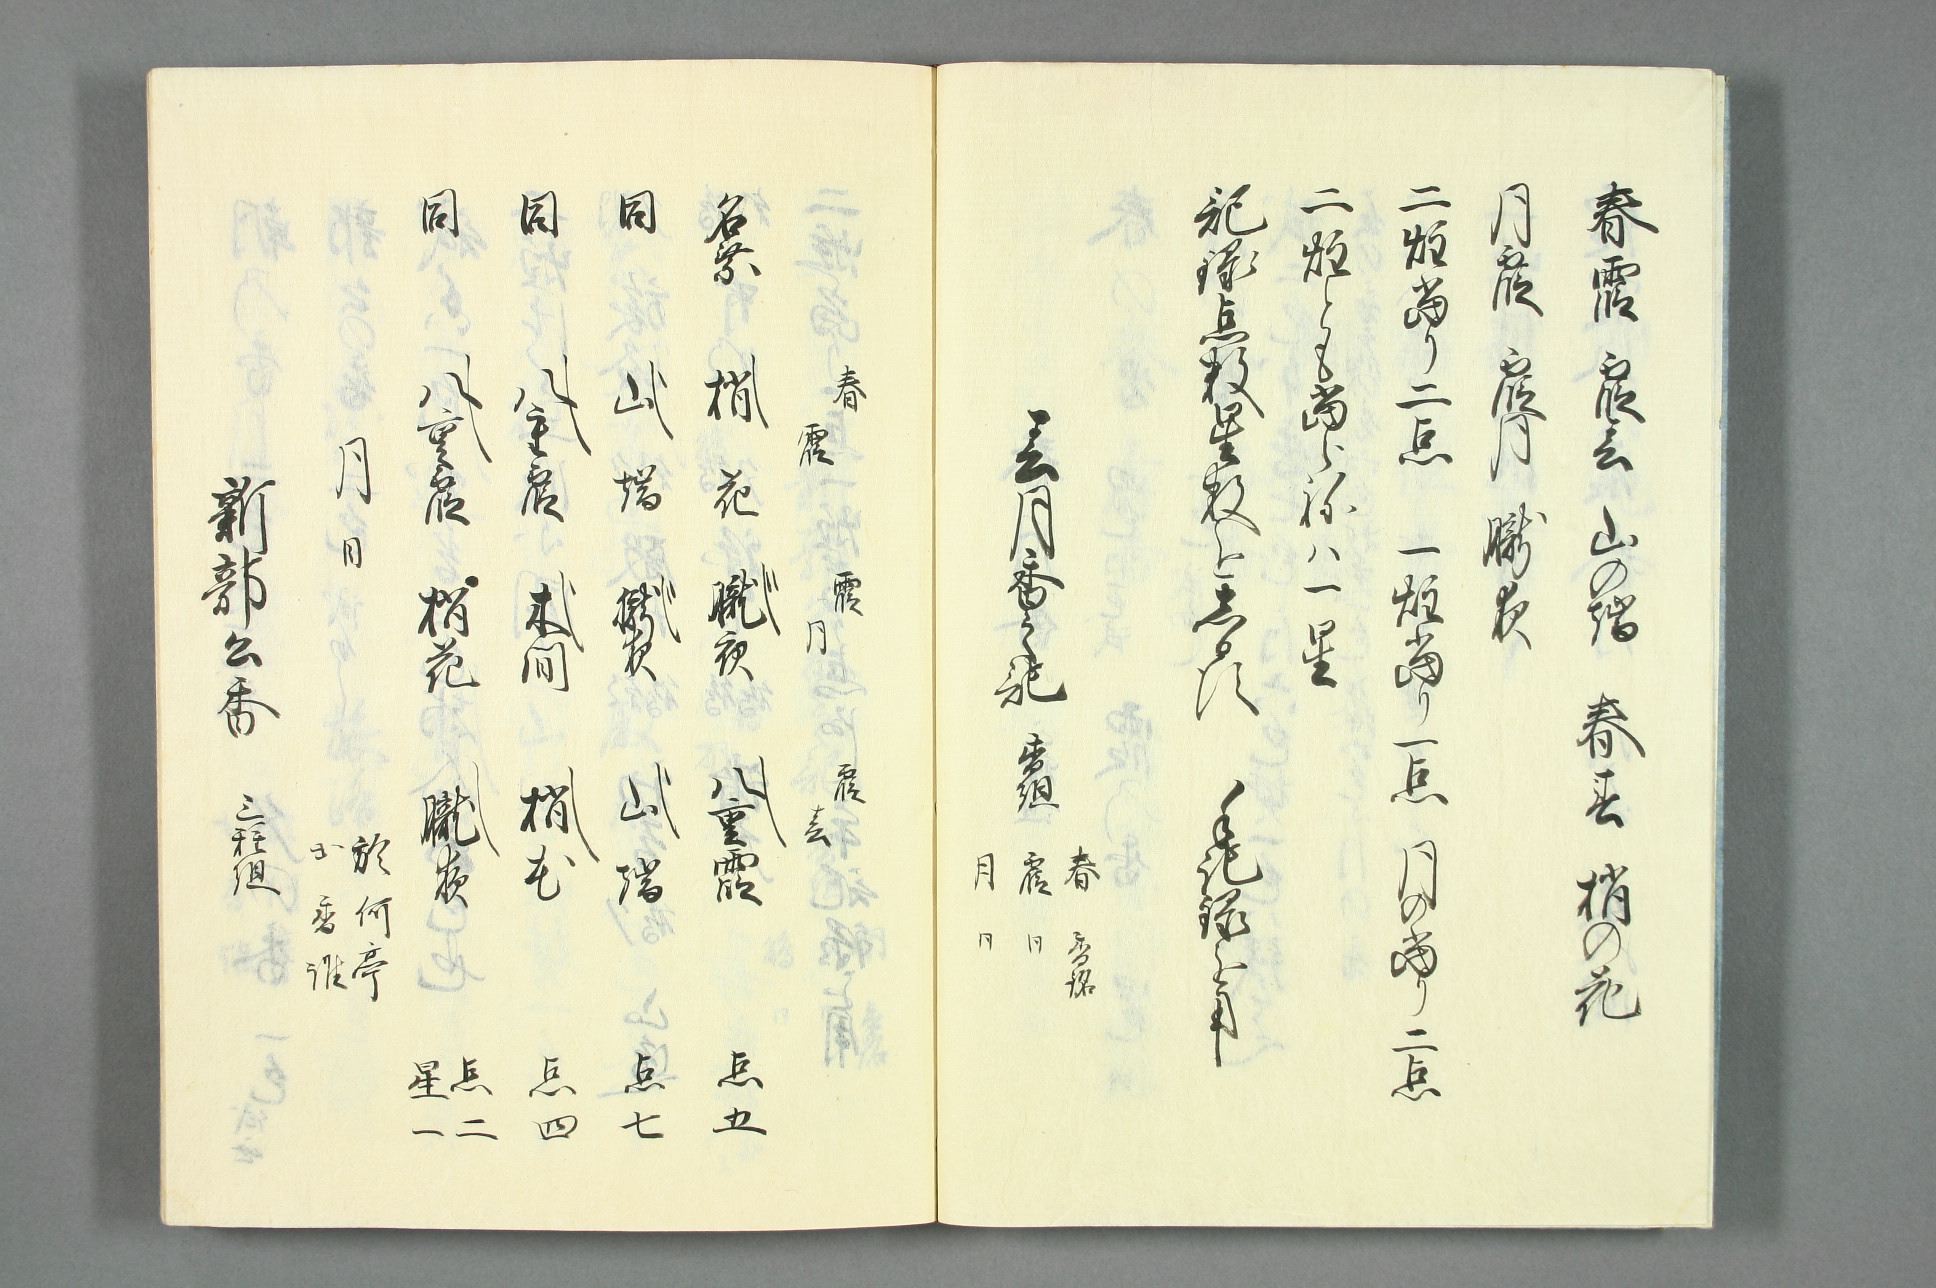 春霞 霞春 山の端 春春 梢の花
月霞 霞月 朧夜
二炷当り二点 一炷当り一点 月の当り二点
二炷とも当らねハ一星
記録点数星数とも
記録之事
春月香之記 香組
春 香銘
霞 同
月 同
春 霞月 霞春
霞
名乗 梢花 朧夜 八重霞 点五
同 山端 朧夜 山端 点七
同 八重霞 木間 梢花 点四
同 八重霞 梢花 朧夜 点二 星一
月日
於何亭
出香誰
新部公香 三種組